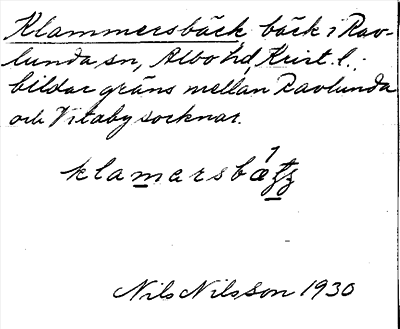 Klammersbäck bäck i Rav-
lunda sn, Albo hd, Krist. l.;
bildar gräns mellan Ravlunda
och Vitaby socknar.
klamarsbæ
Nils Nilsson 1930